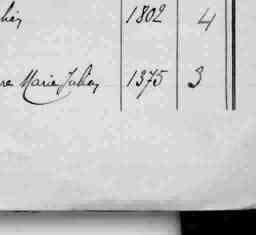 lien 1802 4
re Marie Julien 1375 3